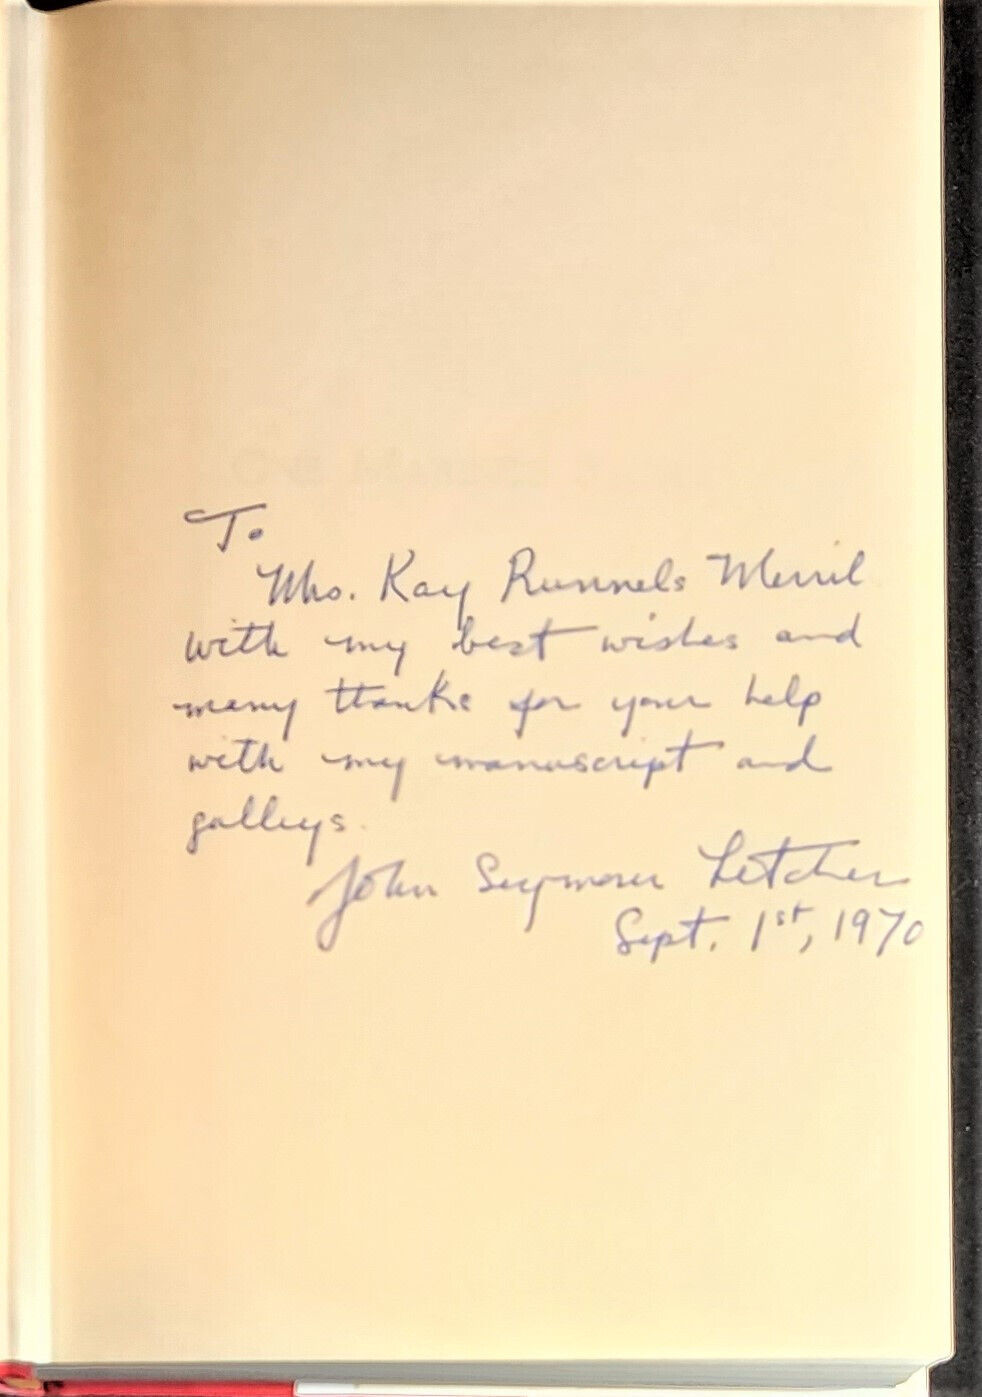 To
Mrs. Kay Runnels Merril
with my best wishes and
many thanks for your help
with my manuscript and
galleys.
John Seymour Letcher
Sept. 1st, 1970